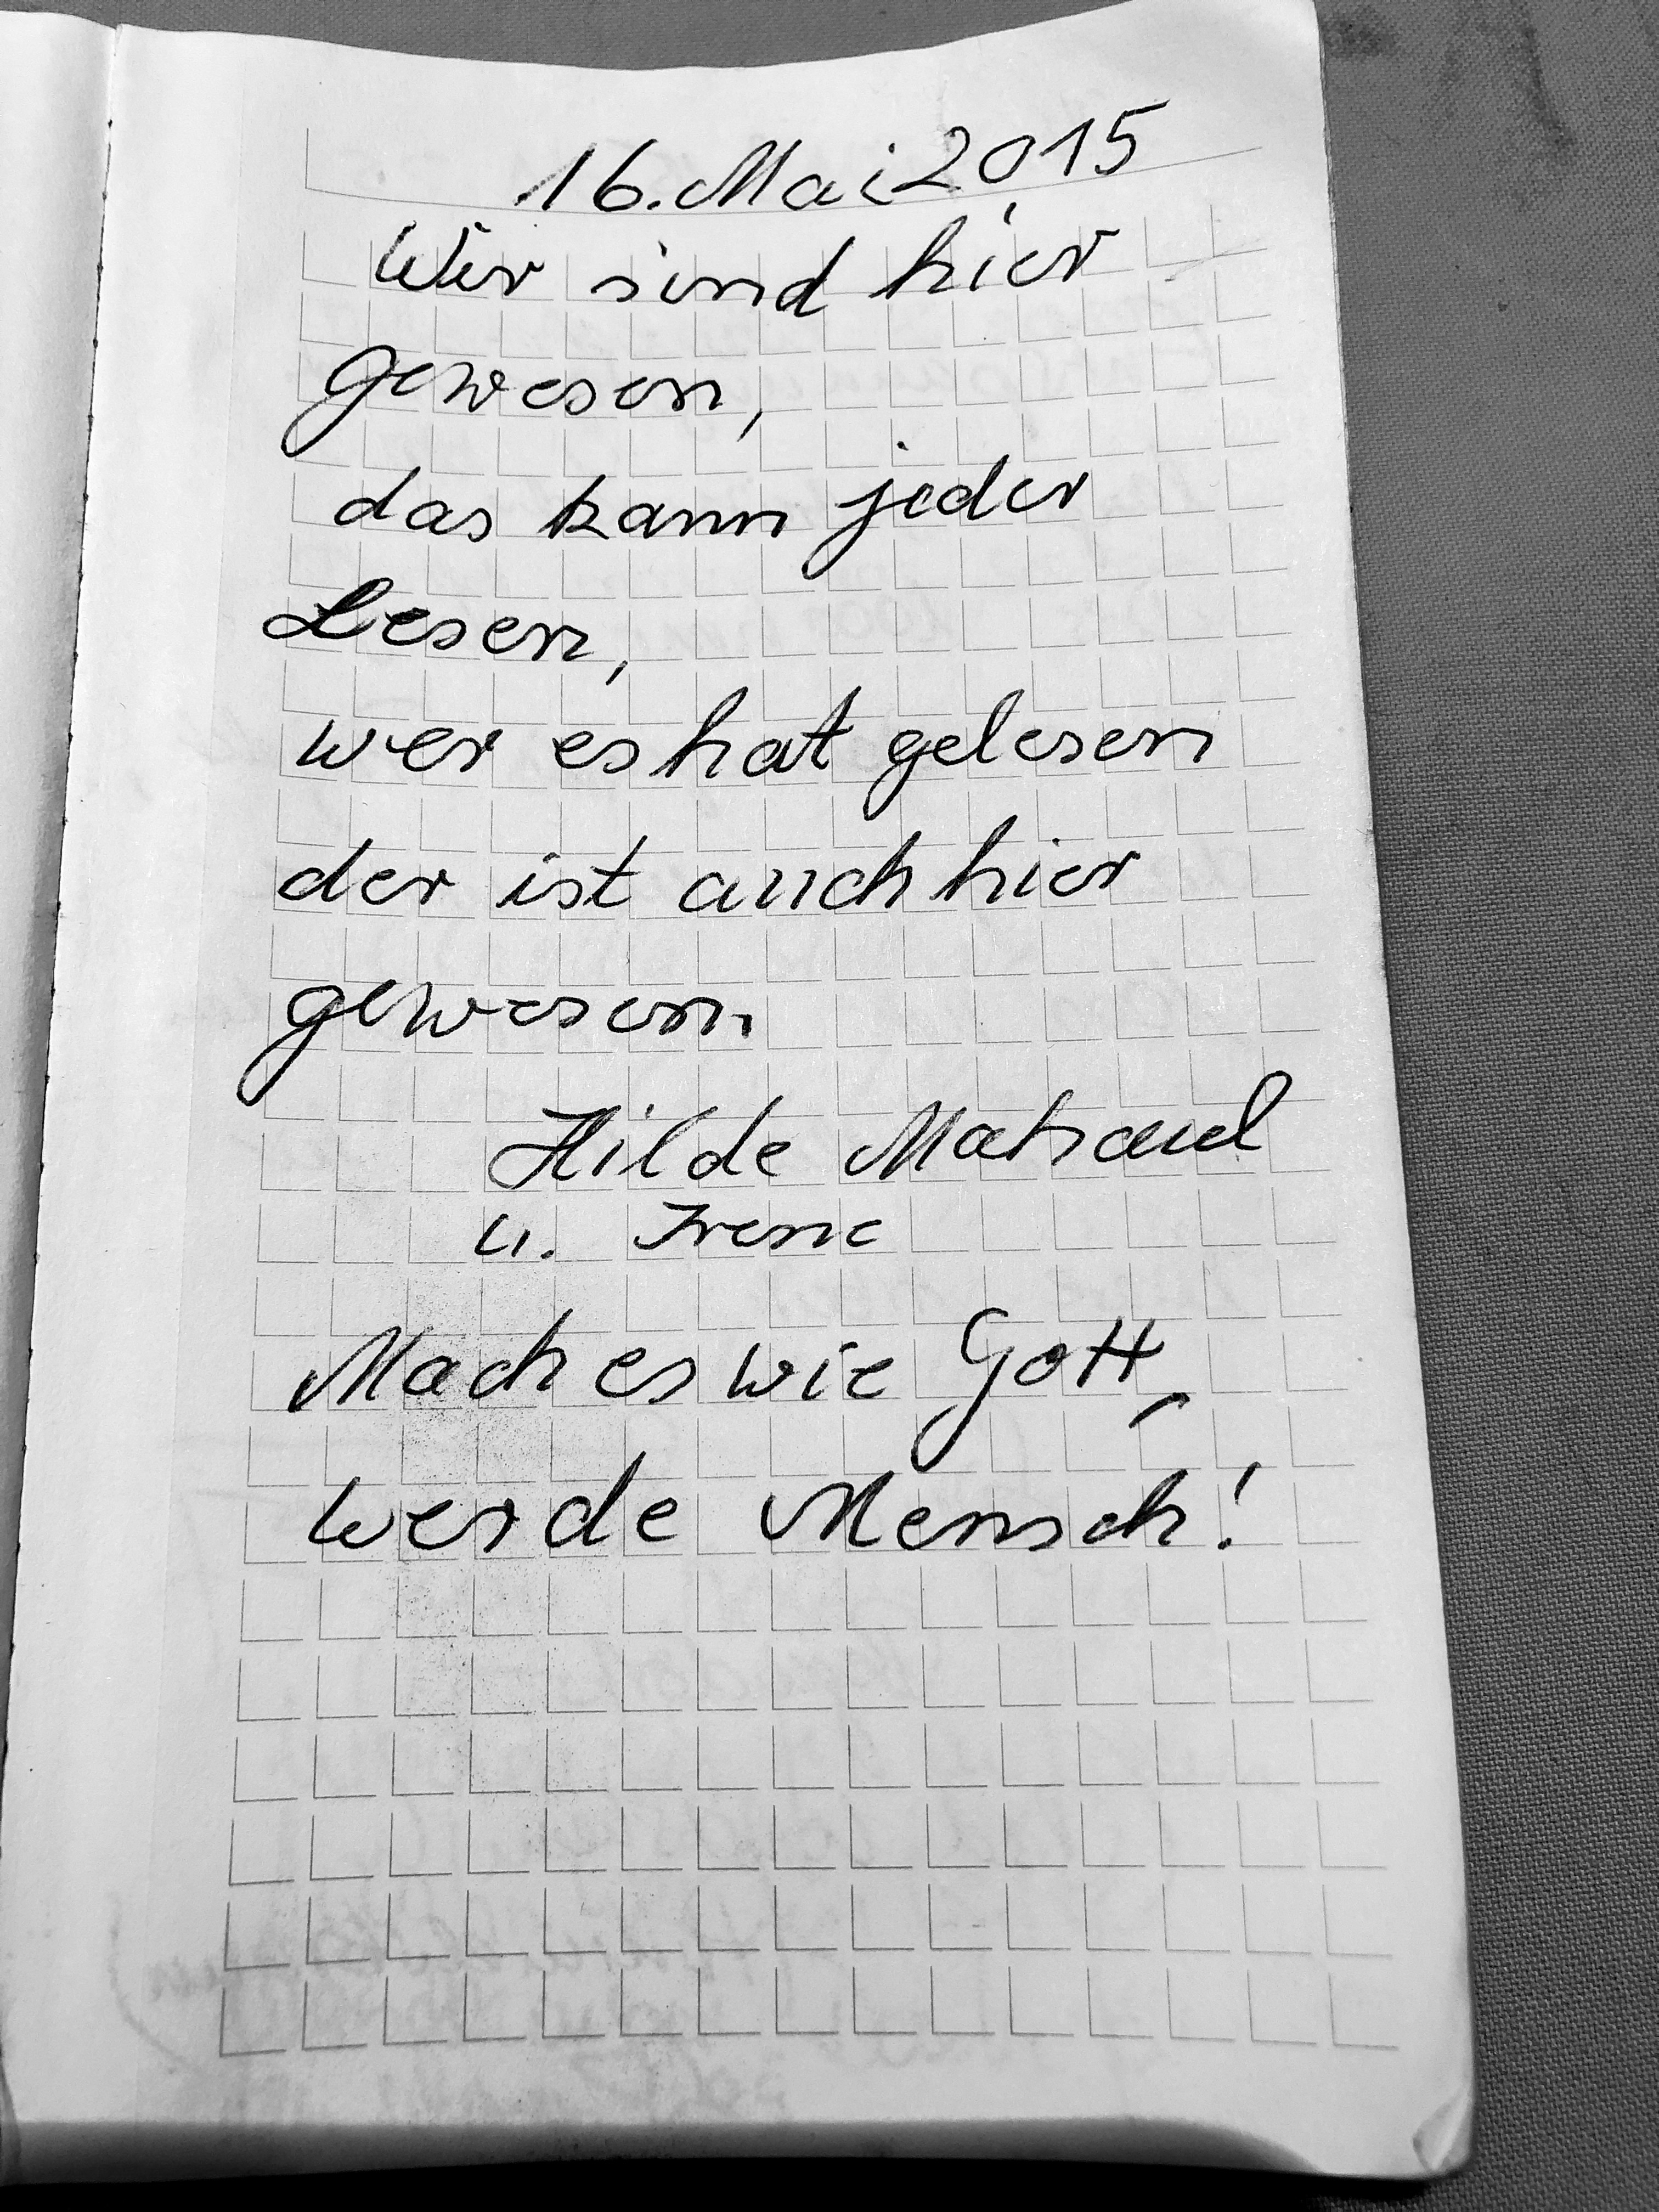 16. Mai 2015
Wir sind hier
gewesen,
das kann jeder
Lesen,
wer es hat gelesen
der ist auch hier
gewesen.
Hilde
u. Irene
Mach es wie Gott,
werde Mensch!